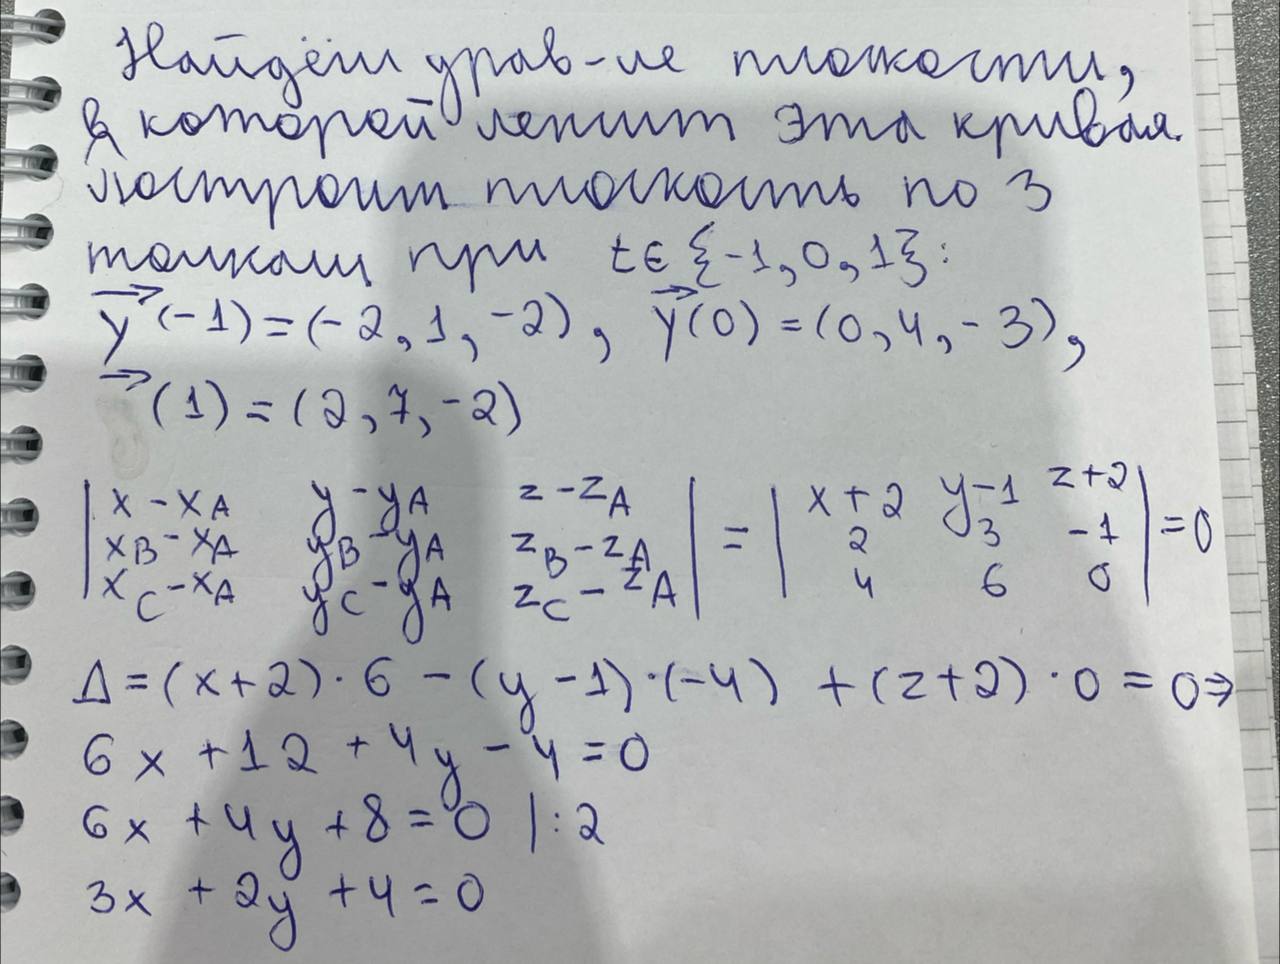 Найдём урав-ие плокости,
в которой лежит эта кривая.
Построим плоскость по 3
точкам при t∈{-1,0,1}:
γ⃗(-1)=(-2,1,-2), γ⃗(0)=(0,4,-3),
⃗(1)=(2,7,-2)
|x-x_A y-y_A z-z_A| = |x+2 y-1 z+2| = 0
|x_B-x_A y_B-y_A z_B-z_A| |2 3 -1|
|x_C-x_A y_C-y_A z_C-z_A| |4 6 0|
Δ=(x+2)·6-(y-1)·(-4)+(z+2)·0=0⇒
6x+12+4y-4=0
6x+4y+8=0 |:2
3x+2y+4=0